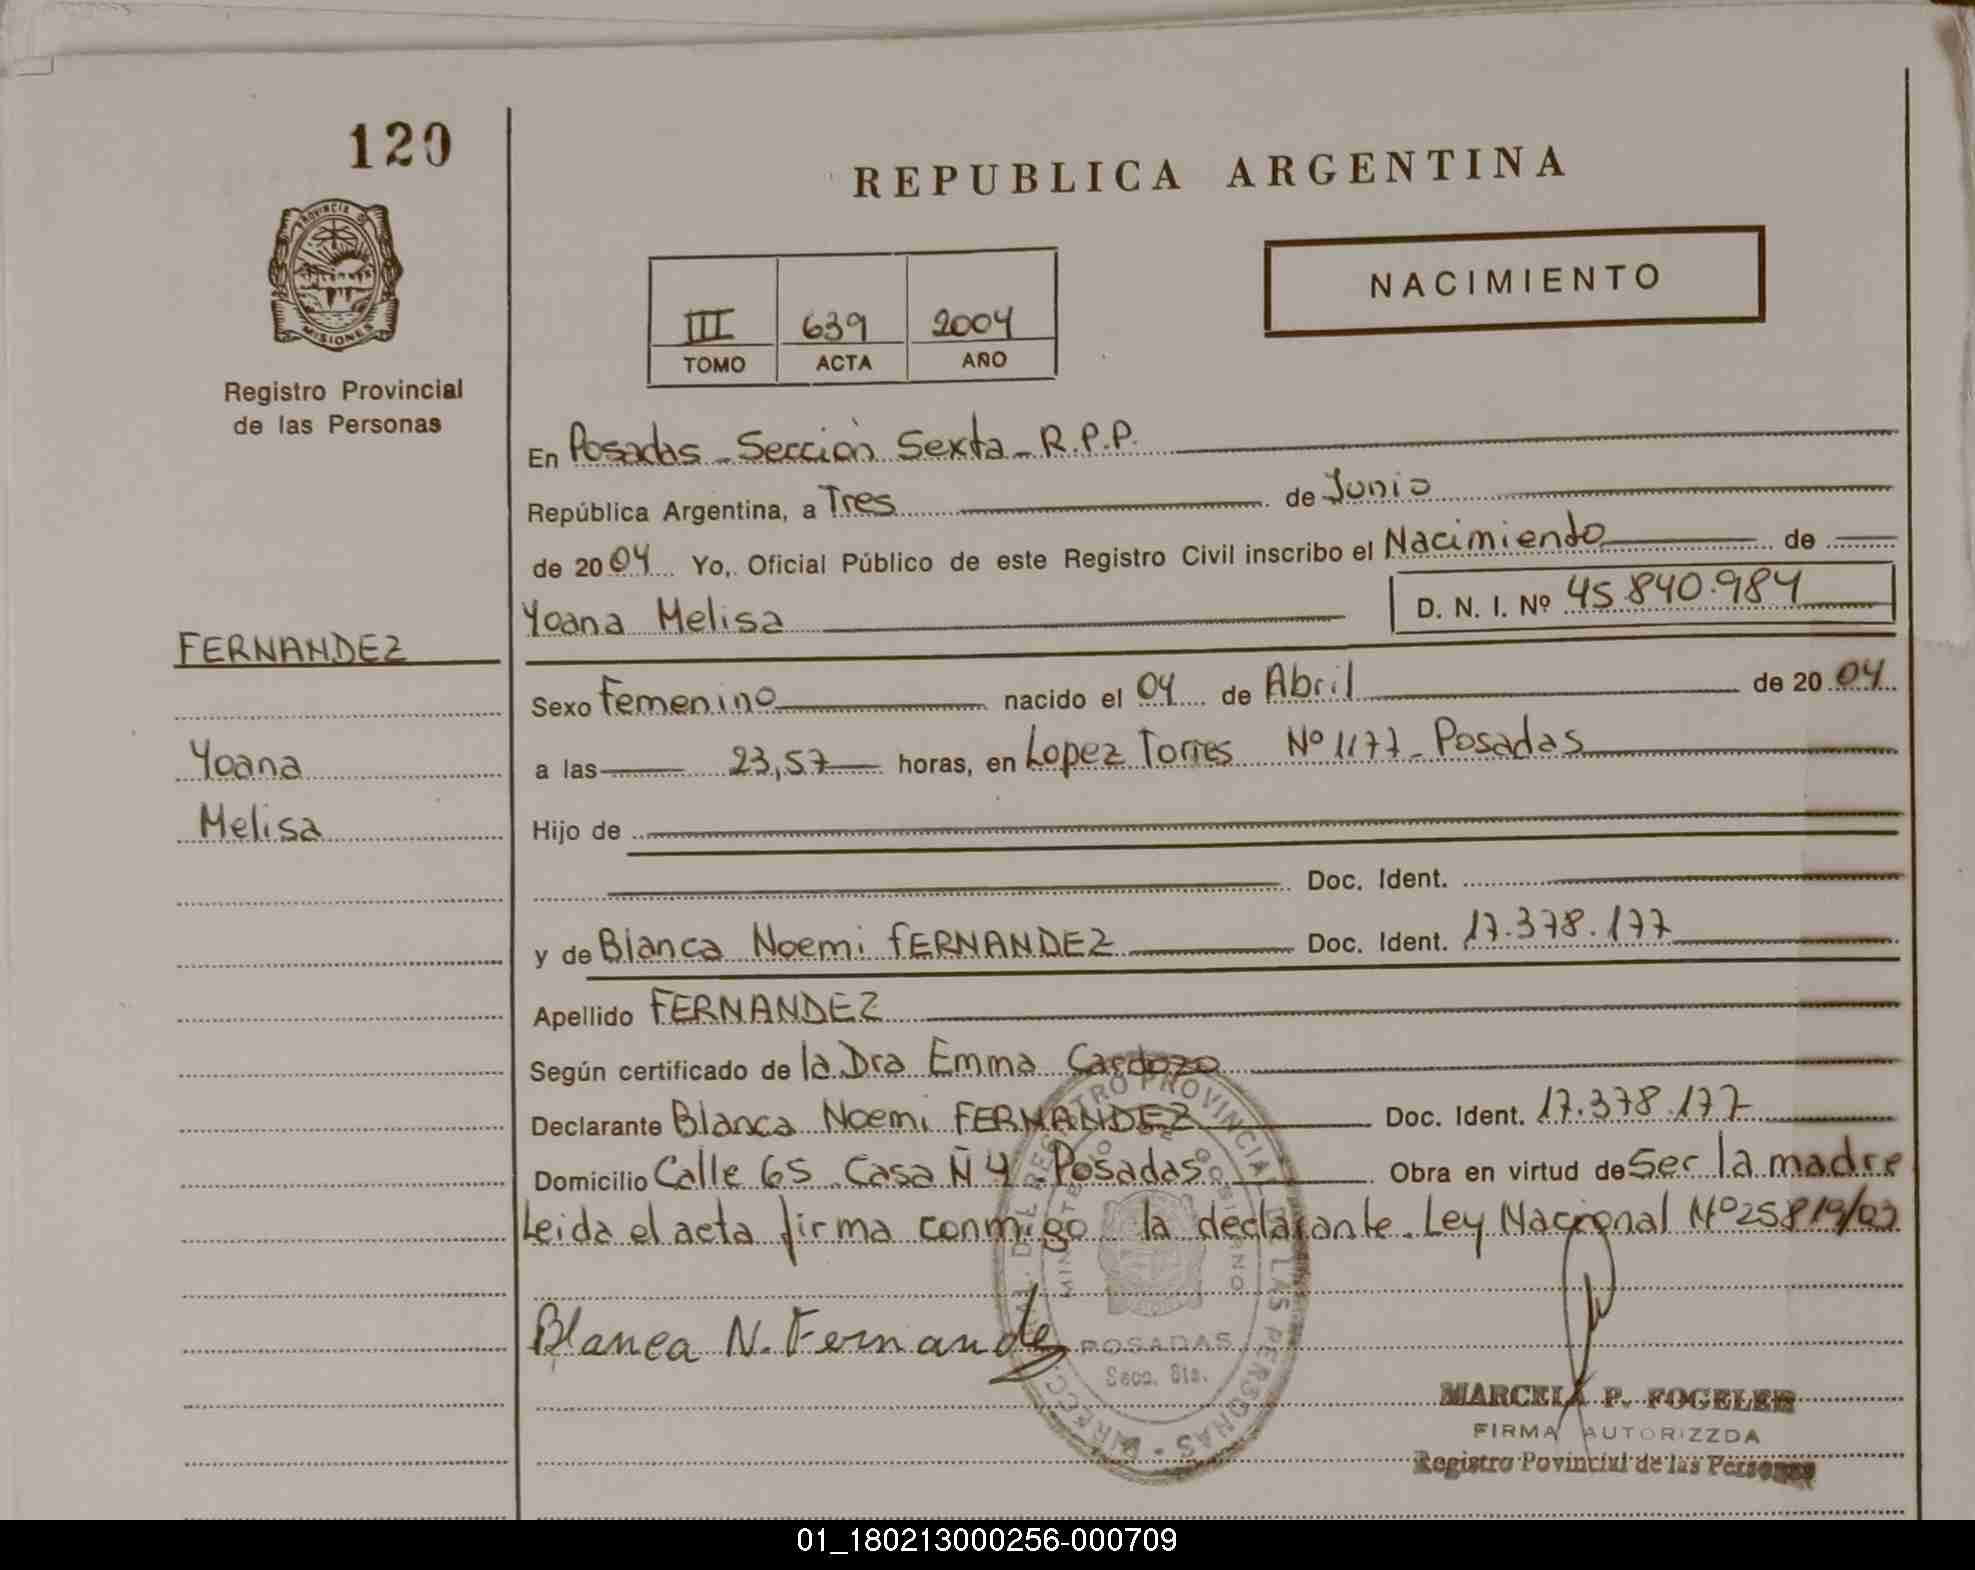 120
REPUBLICA ARGENTINA
PROVINCIA DE
MISIONES
Registro Provincial
de las Personas
NACIMIENTO
III 639 2004
TOMO ACTA AÑO
En Posadas - Sección Sexta - R.P.P.
República Argentina, a Tres de Junio
de 2004 Yo, Oficial Público de este Registro Civil inscribo el Nacimiento de
Yoana Melisa D. N. I. Nº 45.840.984
FERNANDEZ
Yoana
Melisa
Sexo Femenino nacido el 04 de Abril de 2004
a las 23,57 horas, en Lopez Torres Nº 1177 - Posadas
Hijo de
Doc. Ident.
y de Blanca Noemi FERNANDEZ Doc. Ident. 17.378.177
Apellido FERNANDEZ
Según certificado de la Dra Emma Cardozo
Declarante Blanca Noemi FERNANDEZ Doc. Ident. 17.378.177
Domicilio Calle 65 Casa Nº 4 - Posadas Obra en virtud de Ser la madre
Leida el acta firma conmigo la declarante. Ley Nacional Nº 25819/03
Blanca N. Fernandez
POSADAS
Secc. 6ta.
MARCELA P. FOGELER
FIRMA AUTORIZZDA
Registro Povincial de las Personas
01_180213000256-000709